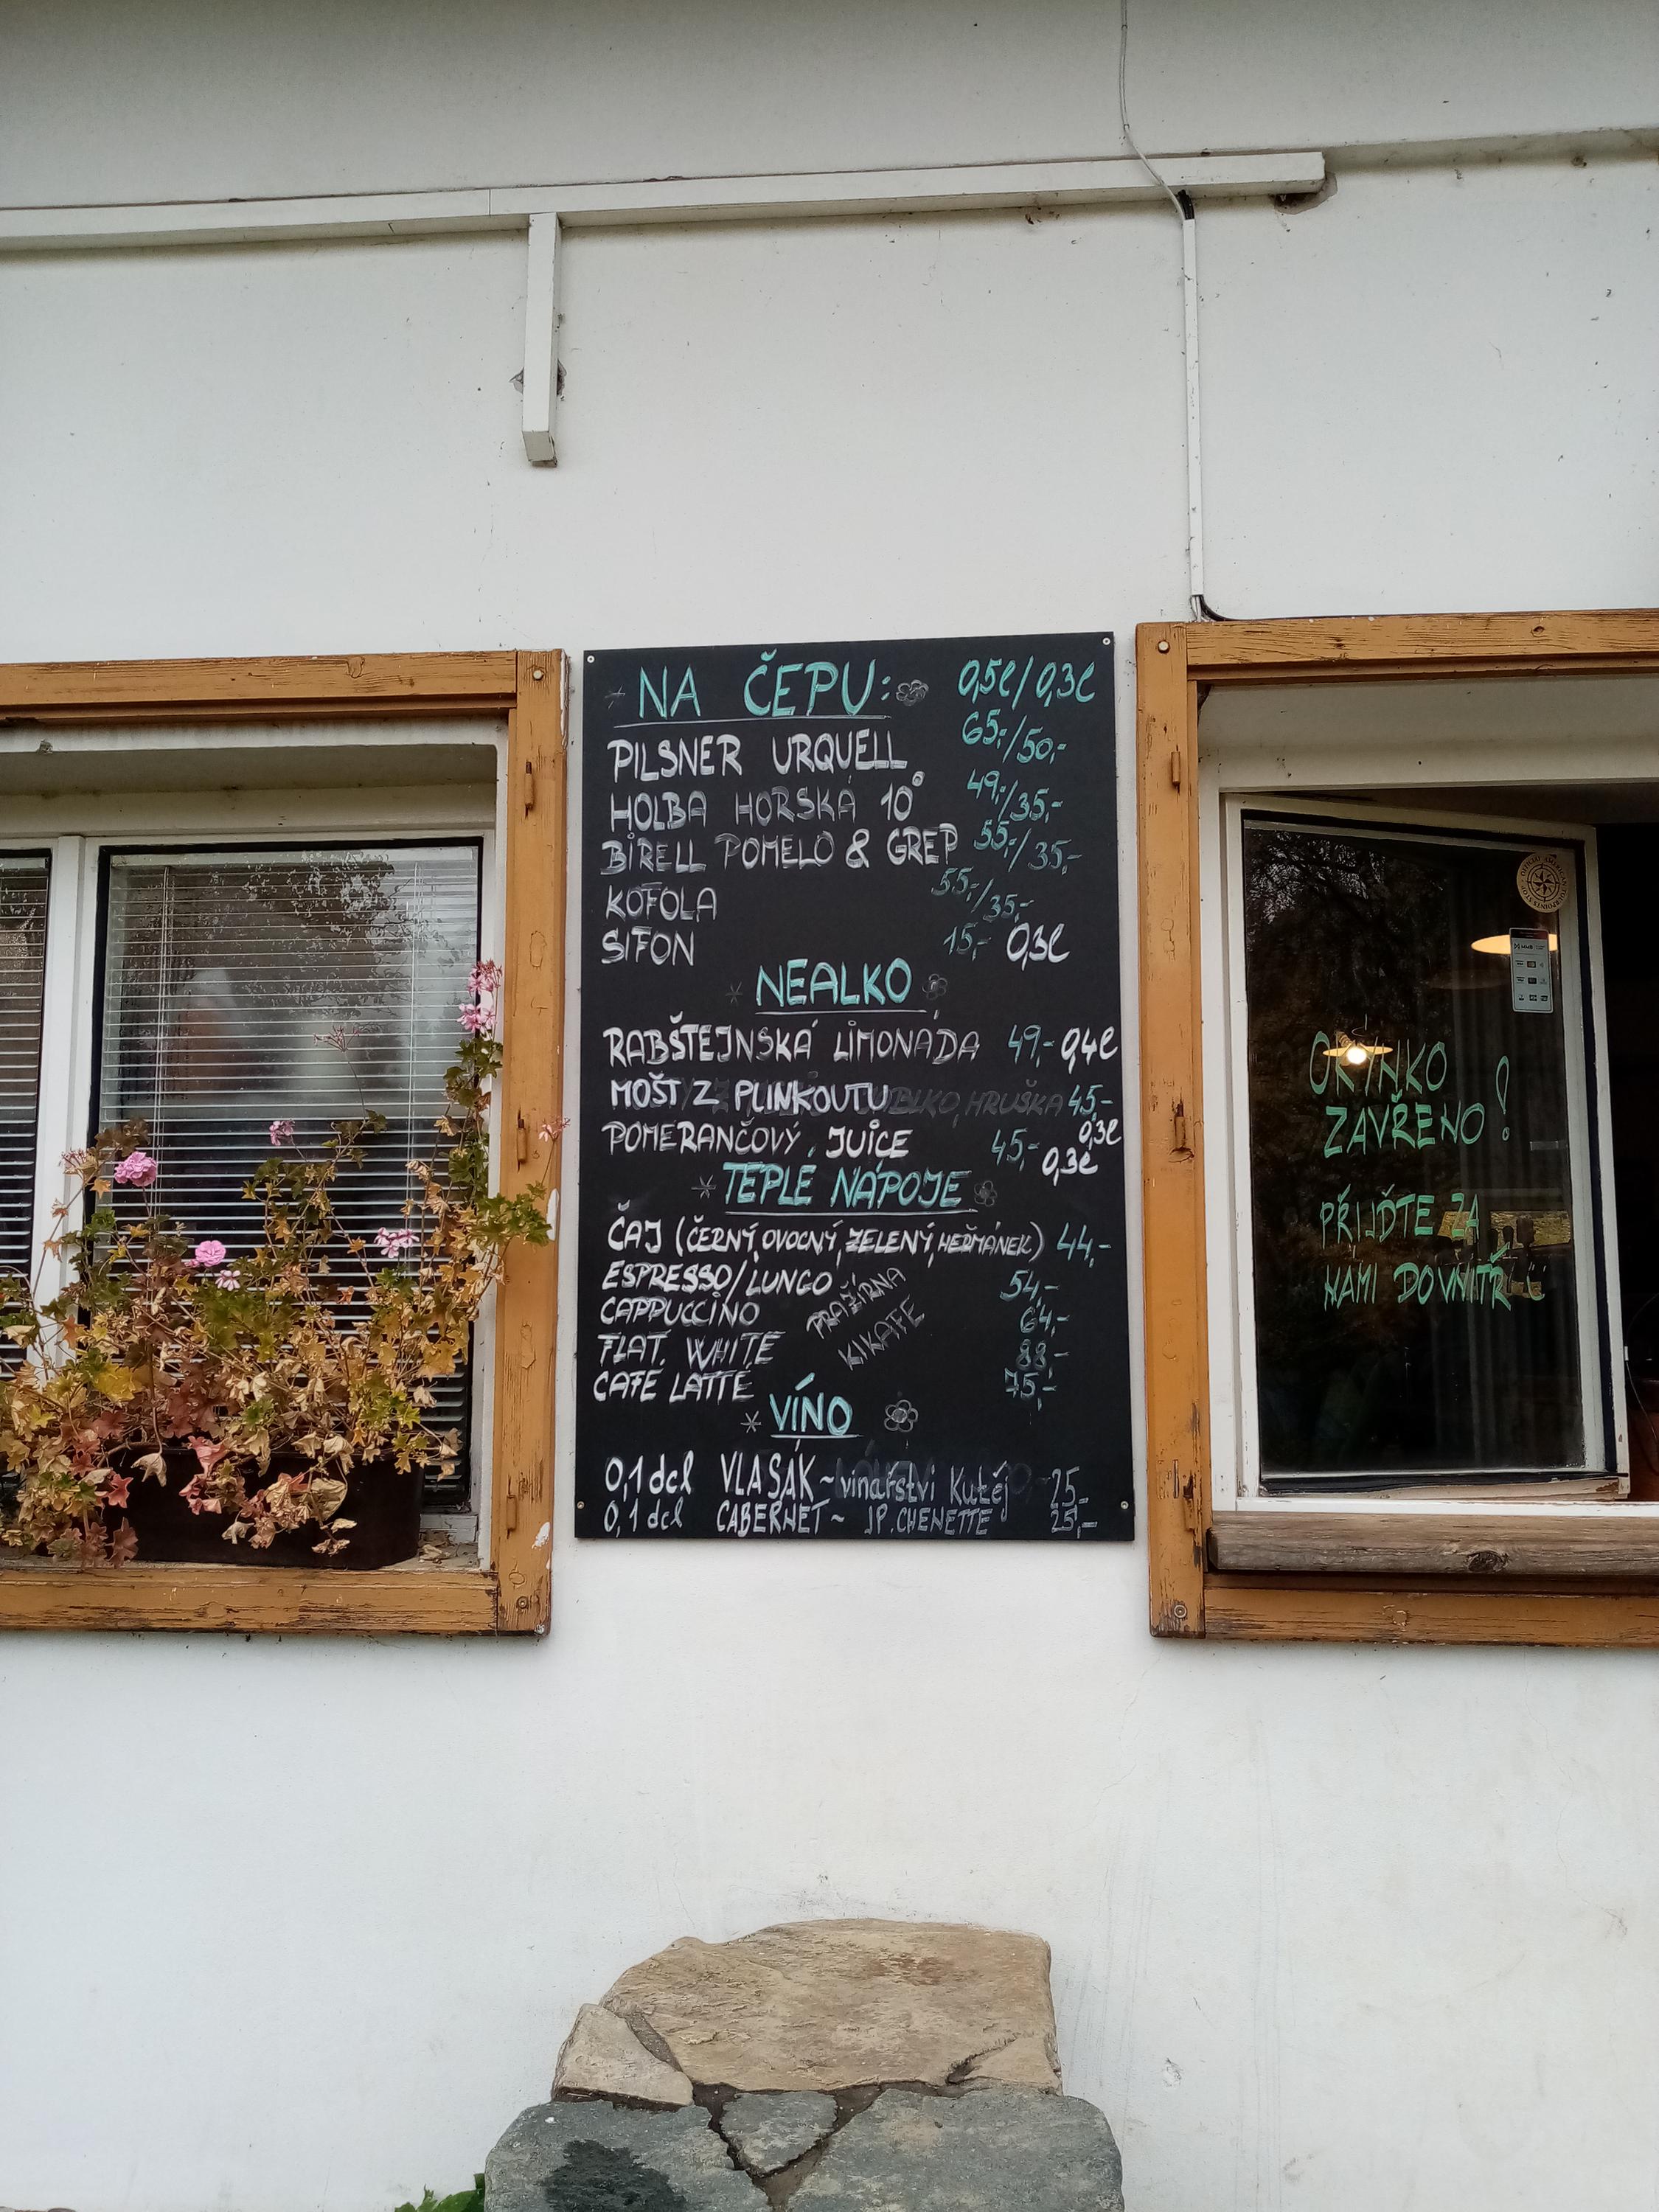 NA ČEPU: 0,5l/0,3l
PILSNER URQUELL 65,-/50,-
HOLBA HORSKÁ 10° 49,-/35,-
BIRELL POMELO & GREP 55,-/35,-
KOFOLA 55,-/35,-
SIFON 15,- 0,3l
NEALKO
RABŠTEJNSKÁ LIMONÁDA 49,- 0,4l
MOŠT Z PLINKOUTU HRUŠKA 45,-
0,3l
POMERANČOVÝ JUICE 45,- 0,3l
TEPLÉ NÁPOJE
ČAJ (ČERNÝ, OVOCNÝ, ZELENÝ, HEŘMÁNEK) 44,-
ESPRESSO/LUNGO 54,-
CAPPUCCINO 64,-
FLAT WHITE 88,-
CAFE LATTE 75,-
PRAŽÍRNA
KIKAFE
VÍNO
0,1 dcl VLASÁK ~ vinařství Kutěj 25,-
0,1 dcl CABERNET ~ JP. CHENETTE 25,-
OKÝNKO
ZAVŘENO!
PŘIJĎTE ZA
NÁMI DOVNITŘ